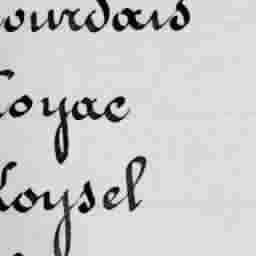 ourdais
oyac
Loysel